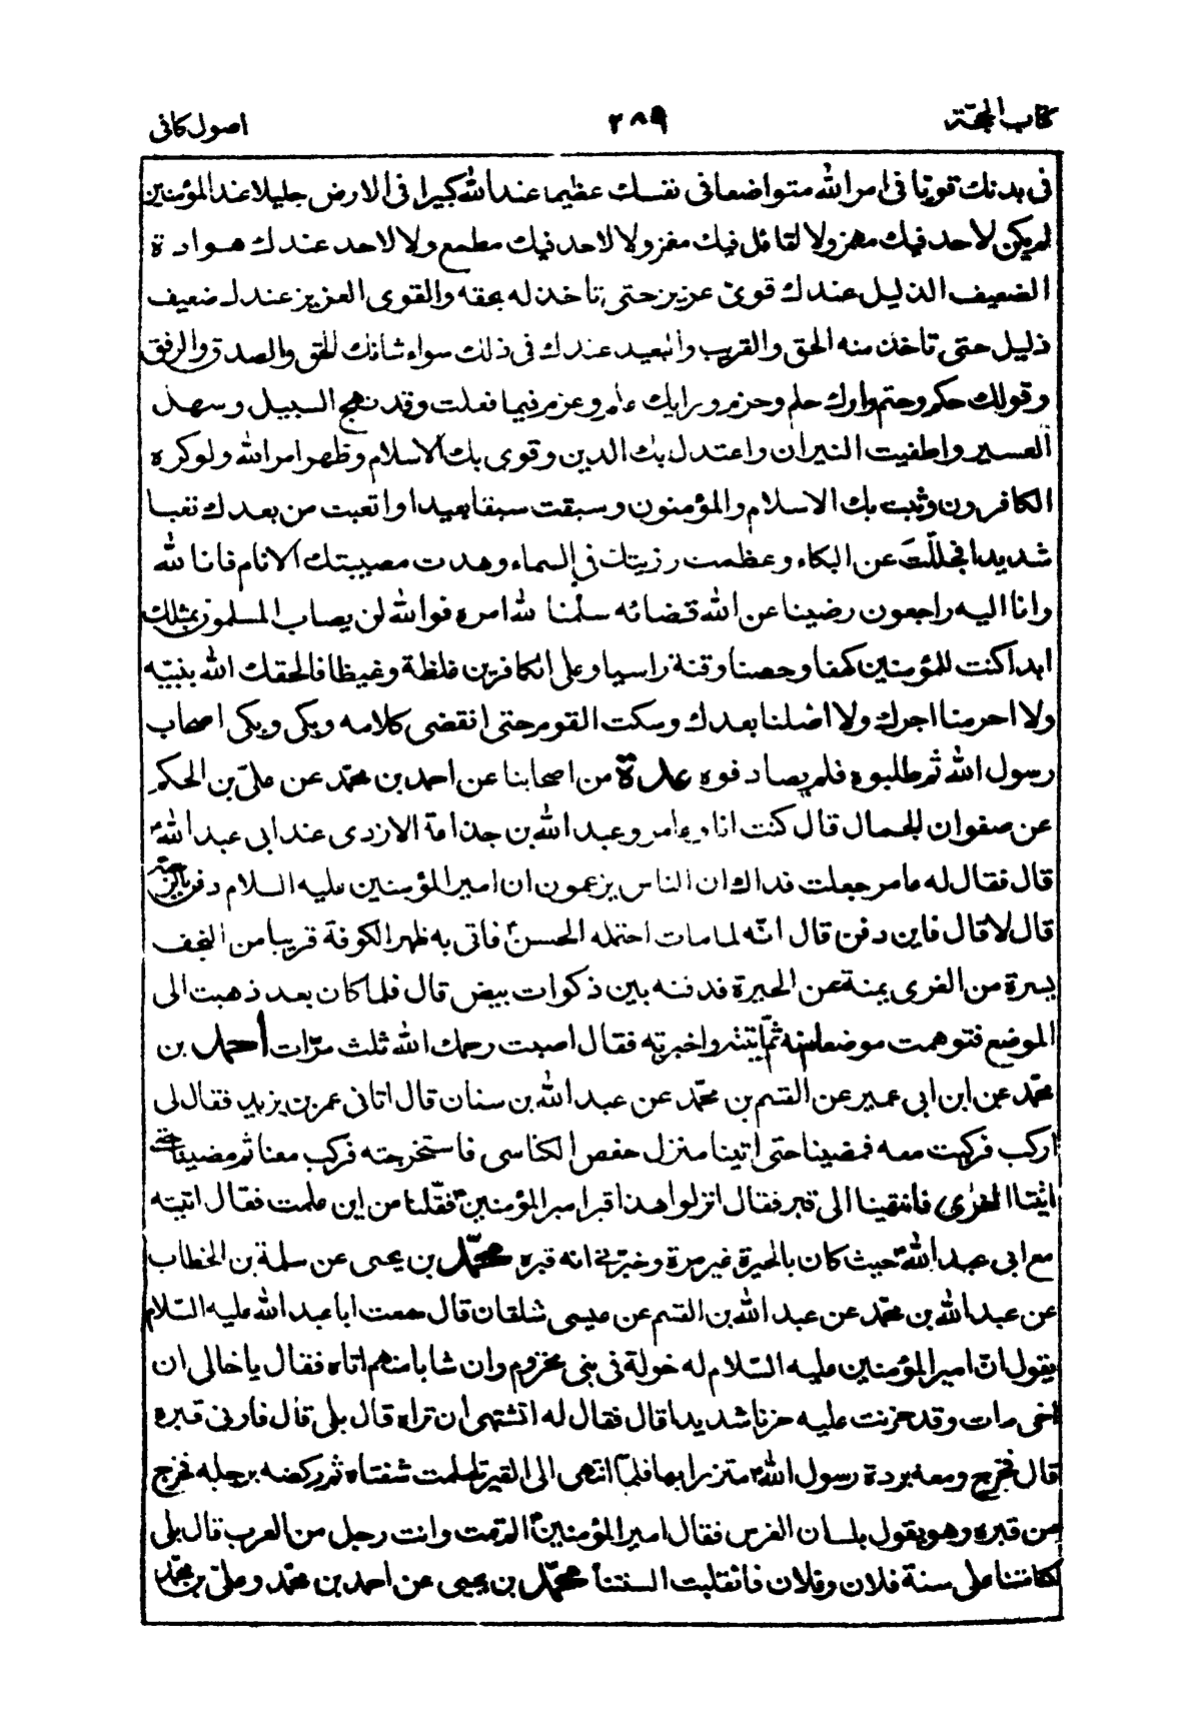 كتاب الحجّة ٢٨٩ اصول كافى
فى بدنك قويّا فى امر الله متواضعا فى نفسك عظيما عند الله كبيرا فى الارض جليلا عند المؤمنين
لم يكن لاحد فيك مهمز ولا لقائل فيك مغمز ولا لاحد فيك مطمع ولا لاحد عندك هوادة
الضعيف الذليل عندك قوىّ عزيز حتى تاخذ له بحقه والقوى العزيز عندك ضعيف
ذليل حتى تاخذ منه الحق والقريب والبعيد عندك فى ذلك سواء شانك الحق والصدق والرفق
وقولك حكم وحتم وامرك حلم وحزم ورايك علم وعزم فيما فعلت وقد نهج السبيل وسهل
العسير واطفيت النيران واعتدل بك الدين وقوى بك الاسلام وظهر امر الله ولو كره
الكافرون وثبت بك الاسلام والمؤمنون وسبقت سبقا بعيدا واتعبت من بعدك تعبا
شديدا فجللت عن البكاء وعظمت رزيتك فى السماء وهدت مصيبتك الانام فانا لله
وانا اليه راجعون رضينا عن الله قضائه سلّمنا لله امره فوالله لن يصاب المسلمون بمثلك
ابدا كنت للمؤمنين كهفا وحصنا وقنة راسيا وعلى الكافرين غلظة وغيظا فالحقك الله بنبيّه
ولا احرمنا اجرك ولا اضلنا بعدك وسكت القوم حتى انقضى كلامه وبكى وبكى اصحاب
رسول الله ثم طلبوه فلم يصادفوه عدة من اصحابنا عن احمد بن محمّد عن علىّ بن الحكم
عن صفوان الجمال قال كنت انا وعامر وعبد الله بن جذاعة الازدى عند ابى عبد الله ع
قال فقال له عامر جعلت فداك ان الناس يزعمون ان امير المؤمنين عليه السلام دفن بالرحبة
قال لا قال فاين دفن قال انّه لما مات احتمله الحسن ع فاتى به ظهر الكوفة قريبا من النجف
يسرة من الغرى يمنة عن الحيرة فدفنه بين ذكوات بيض قال فلما كان بعد ذهبت الى
الموضع فتوهمت موضعا منه ثمّ اتيته واخبرته فقال اصبت رحمك الله ثلث مرّات أحمد بن
محمّد عن ابن ابى عمير عن القسم بن محمّد عن عبد الله بن سنان قال اتانى عمر بن يزيد فقال لى
اركب فركبت معه فمضينا حتى اتينا منزل حفص الكناسى فاستخرجته فركب معنا ثم مضينا حتى
اتينا الغرى فانتهينا الى قبر فقال انزلوا هذا قبر امير المؤمنين ع فقلنا من اين علمت فقال اتيته
مع ابى عبد الله ع حيث كان بالحيرة غير مرة وخبّرنى انه قبره محمّد بن يحيى عن سلمة بن الخطاب
عن عبد الله بن محمّد عن عبد الله بن القسم عن عيسى شلقان قال سمعت ابا عبد الله عليه السّلام
يقول انّ امير المؤمنين عليه السّلام له خولة فى بنى مخزوم وان شابا منهم اتاه فقال يا خالى ان
اخى مات وقد حزنت عليه حزنا شديدا قال فقال له اتشتهى ان تراه قال بلى قال فارنى قبره
قال فخرج ومعه بردة رسول الله متزرا بها فلمّا انتهى الى القبر تلملمت شفتاه ثم ركضه برجله فخرج
من قبره وهو يقول بلسان الفرس فقال امير المؤمنين ع الم تمت وانت رجل من العرب قال بلى
لكنا متنا على سنة فلان وفلان فانقلبت السنتنا محمّد بن يحيى عن احمد بن محمّد وعلىّ بن محمّد